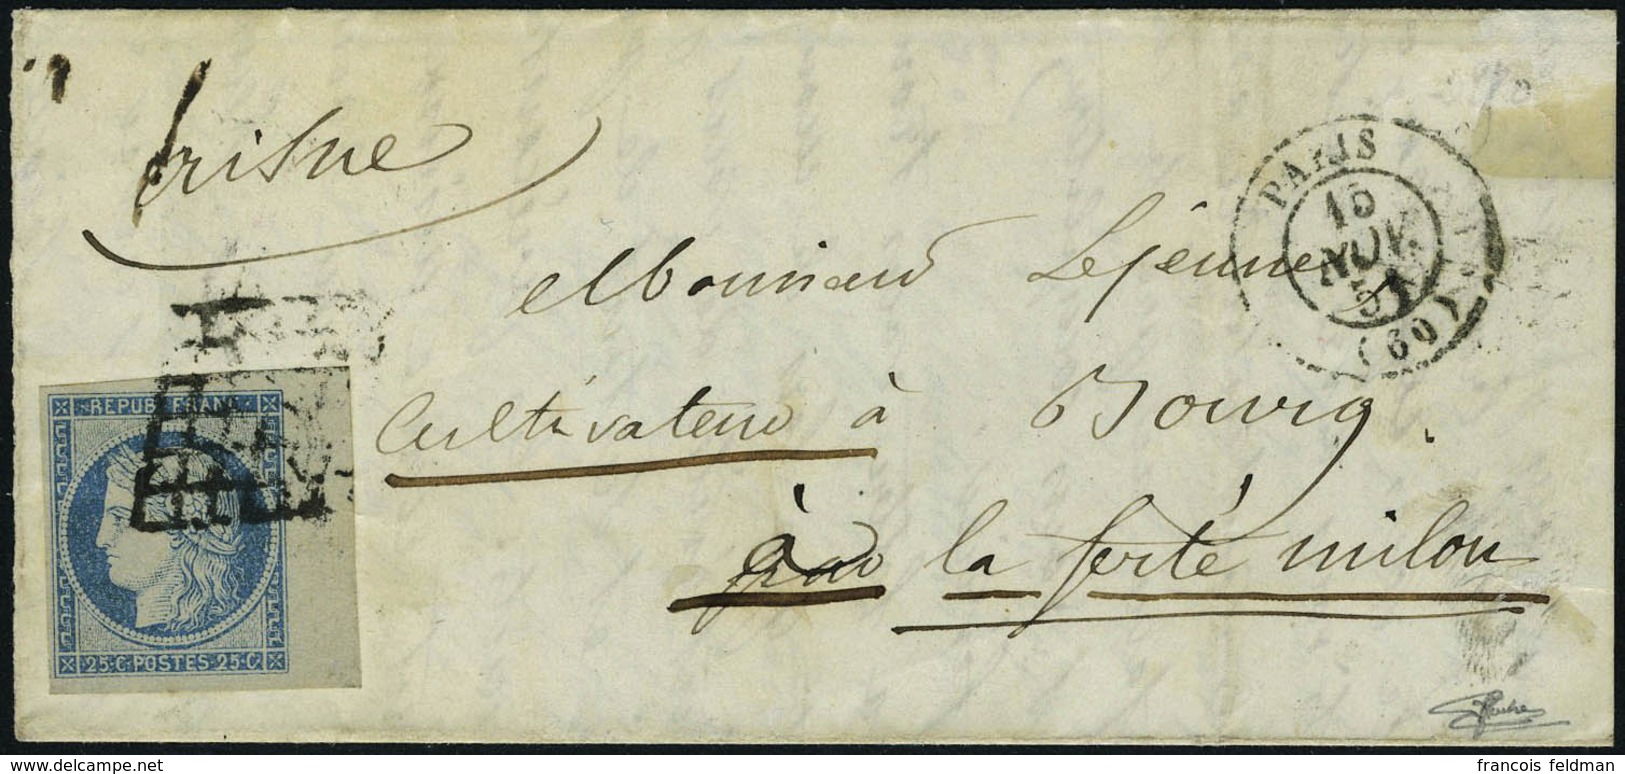 Aisne
PARIS
15
NOV.
51
(60)
Monsieur Lejeune
Cultivateur à Bourg
à la ferté milon
REPUB. FRANC.
25·C·POSTES·25·C
delcampe.net
francois feldman